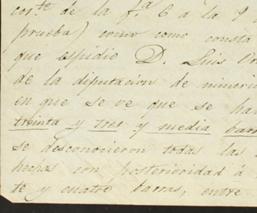 corte. de la f.a 6 á la 9
prueba) como como consta
que espidio D. Luis
de la diputacion de mineria
en que se ve que se ha
treinta y tres y media barr
se desconocieron todas las
hechas con posterioridad á
te y cuatro barras, entre